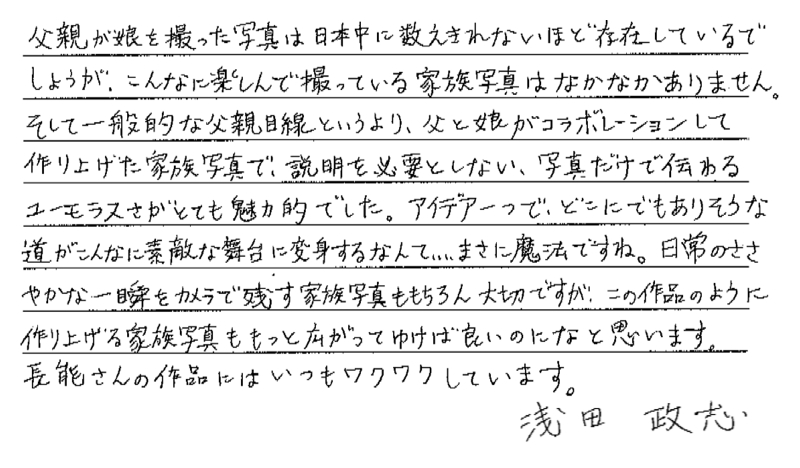 父親が娘を撮った写真は日本中に数えきれないほど存在しているで
しょうが、こんなに楽しんで撮っている家族写真はなかなかありません。
そして一般的な父親目線というより、父と娘がコラボレーションして
作り上げた家族写真で、説明を必要としない、写真だけで伝わる
ユーモラスさがとても魅力的でした。アイデア一つで、どこにでもありそうな
道がこんなに素敵な舞台に変身するなんて....まさに魔法ですね。日常のささ
やかな一瞬をカメラで残す家族写真ももちろん大切ですが、この作品のように
作り上げる家族写真ももっと広がってゆけば良いのになと思います。
長能さんの作品にはいつもワクワクしています。
浅田 政志